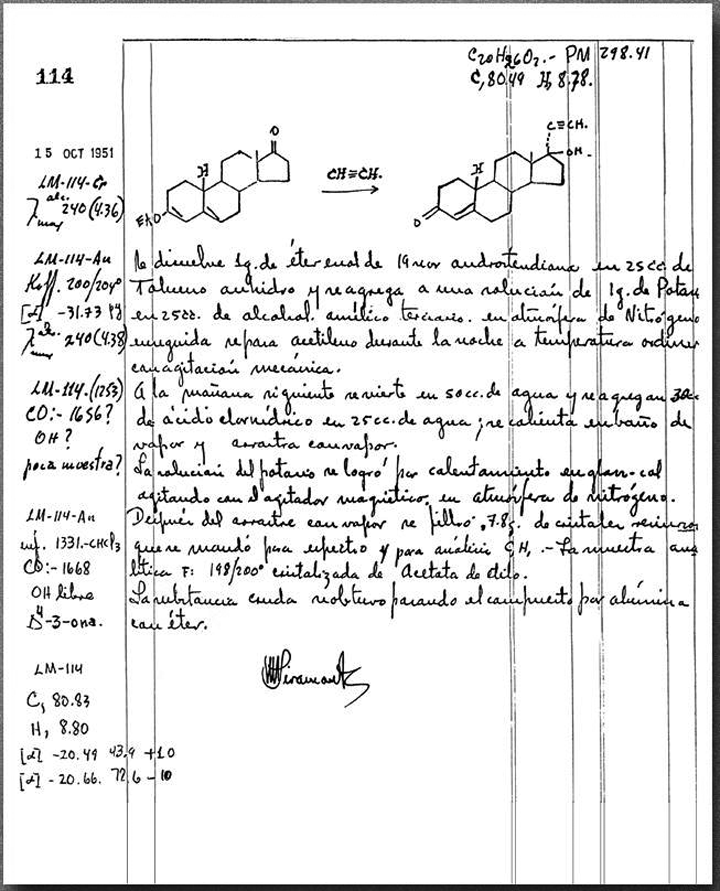 C20H26O2.- PM 298.41
C, 80.49 H, 8.78.
114
15 OCT 1951
LM-114-Cr
λ alc. max 240 (4.36)
EtO
H
O
CH≡CH.
H
C≡CH.
OH.
O
LM-114-An
Koff. 200/204°
[α] -31.73
λ alc. max 240 (4.38)
LM-114.(1253)
CO:- 1656?
OH?
poca muestra?
LM-114-An
inf. 1331.-CHCl3
CO:- 1668
OH libre
Δ4-3-ona.
LM-114
C, 80.83
H, 8.80
[α] -20.49 43.9 +10
[α] -20.66. 72.6 -10
Se disuelve 1g. de éter enol de 19 nor androstendiona en 25cc. de
Tolueno anhidro y se agrega a una solución de 1g. de Potasio
en 25cc. de alcohol. amílico terciario. en atmósfera de Nitrógeno
enseguida se pasa acetileno durante la noche a temperatura
con agitación mecánica.
A la mañana siguiente se vierte en 50cc. de agua y se agregan 30cc
de ácido clorhídrico en 25cc. de agua; se calienta en baño de
vapor y arrastra con vapor.
La solución del potasio se logró por calentamiento en
agitando con el agitador magnético, en atmósfera de nitrógeno.
Después del arrastre con vapor se filtró, 7.8g. de cristales
que se mandó para espectro y para análisis C, H, .- La muestra
lítica F: 198/200° cristalizada de Acetato de etilo.
La substancia cruda se obtuvo pasando el compuesto por alúmina
con éter.